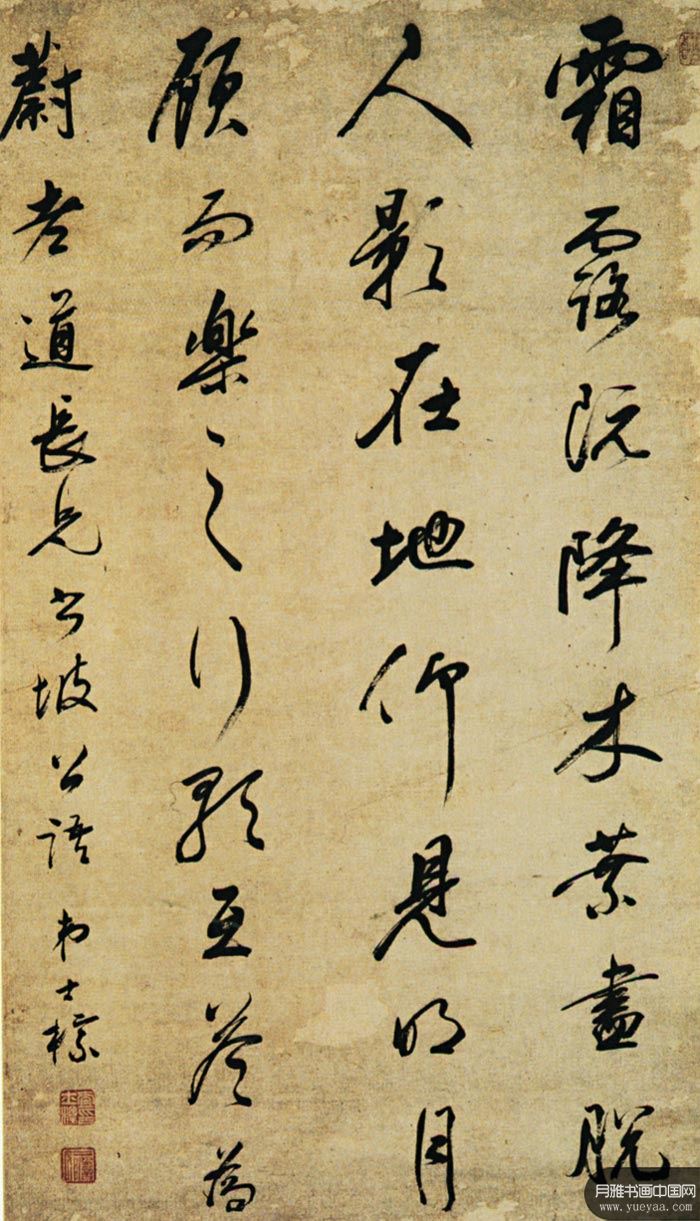 霜露既降木葉盡脫
人影在地仰見明月
顧而樂之行歌互答為
蔚老道長兄書坡公語 弟士標
月雅书画中国网
www.yueyaa.com